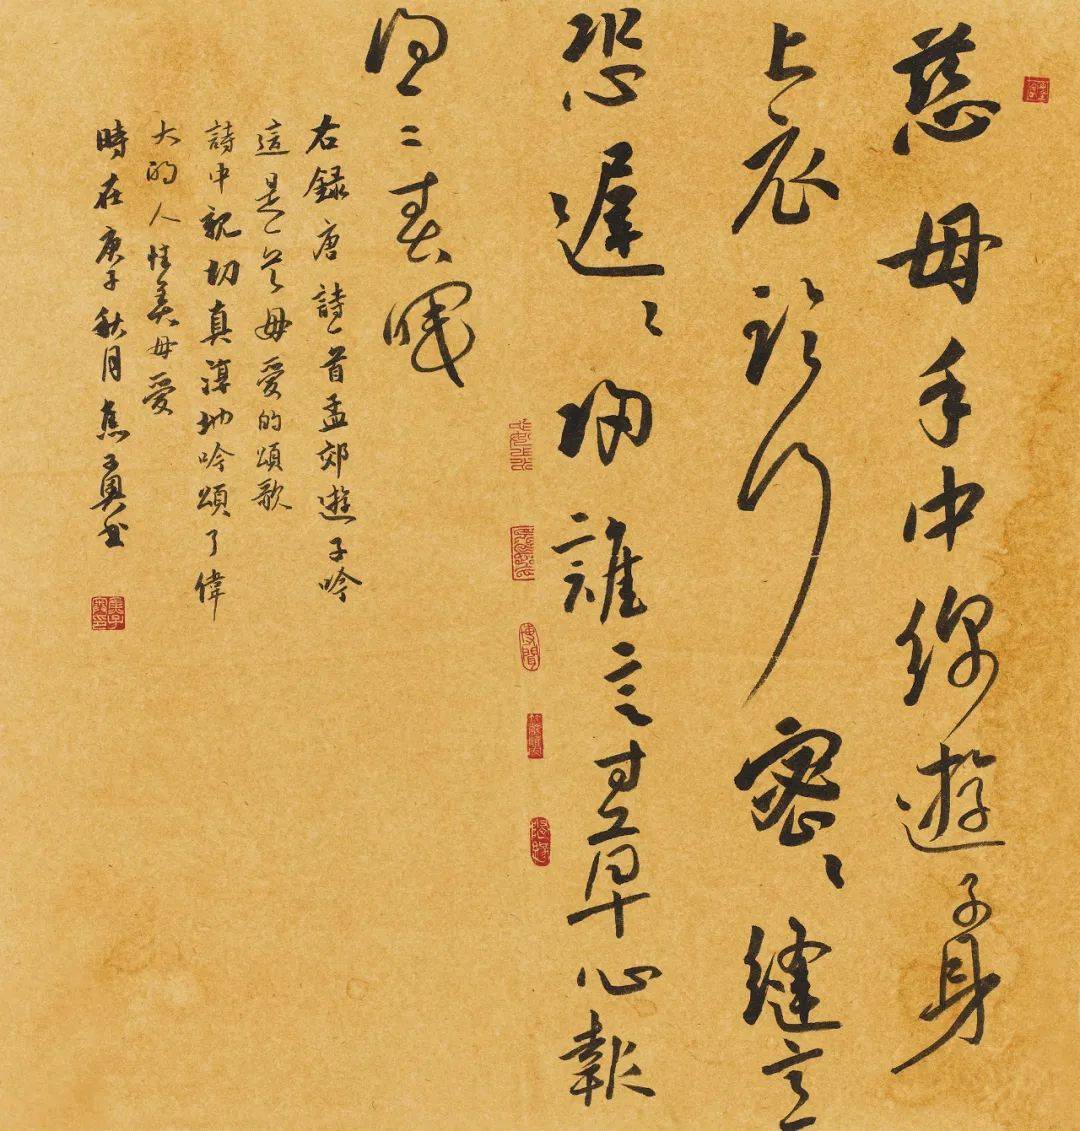 慈母手中線遊子身
上衣臨行密〻縫意
恐遲〻歸誰言寸草心報
得三春暉
右録唐詩一首孟郊遊子吟
這是一首母愛的頌歌
詩中親切真淳地吟頌了偉
大的人性美母愛
時在庚子秋月焦書